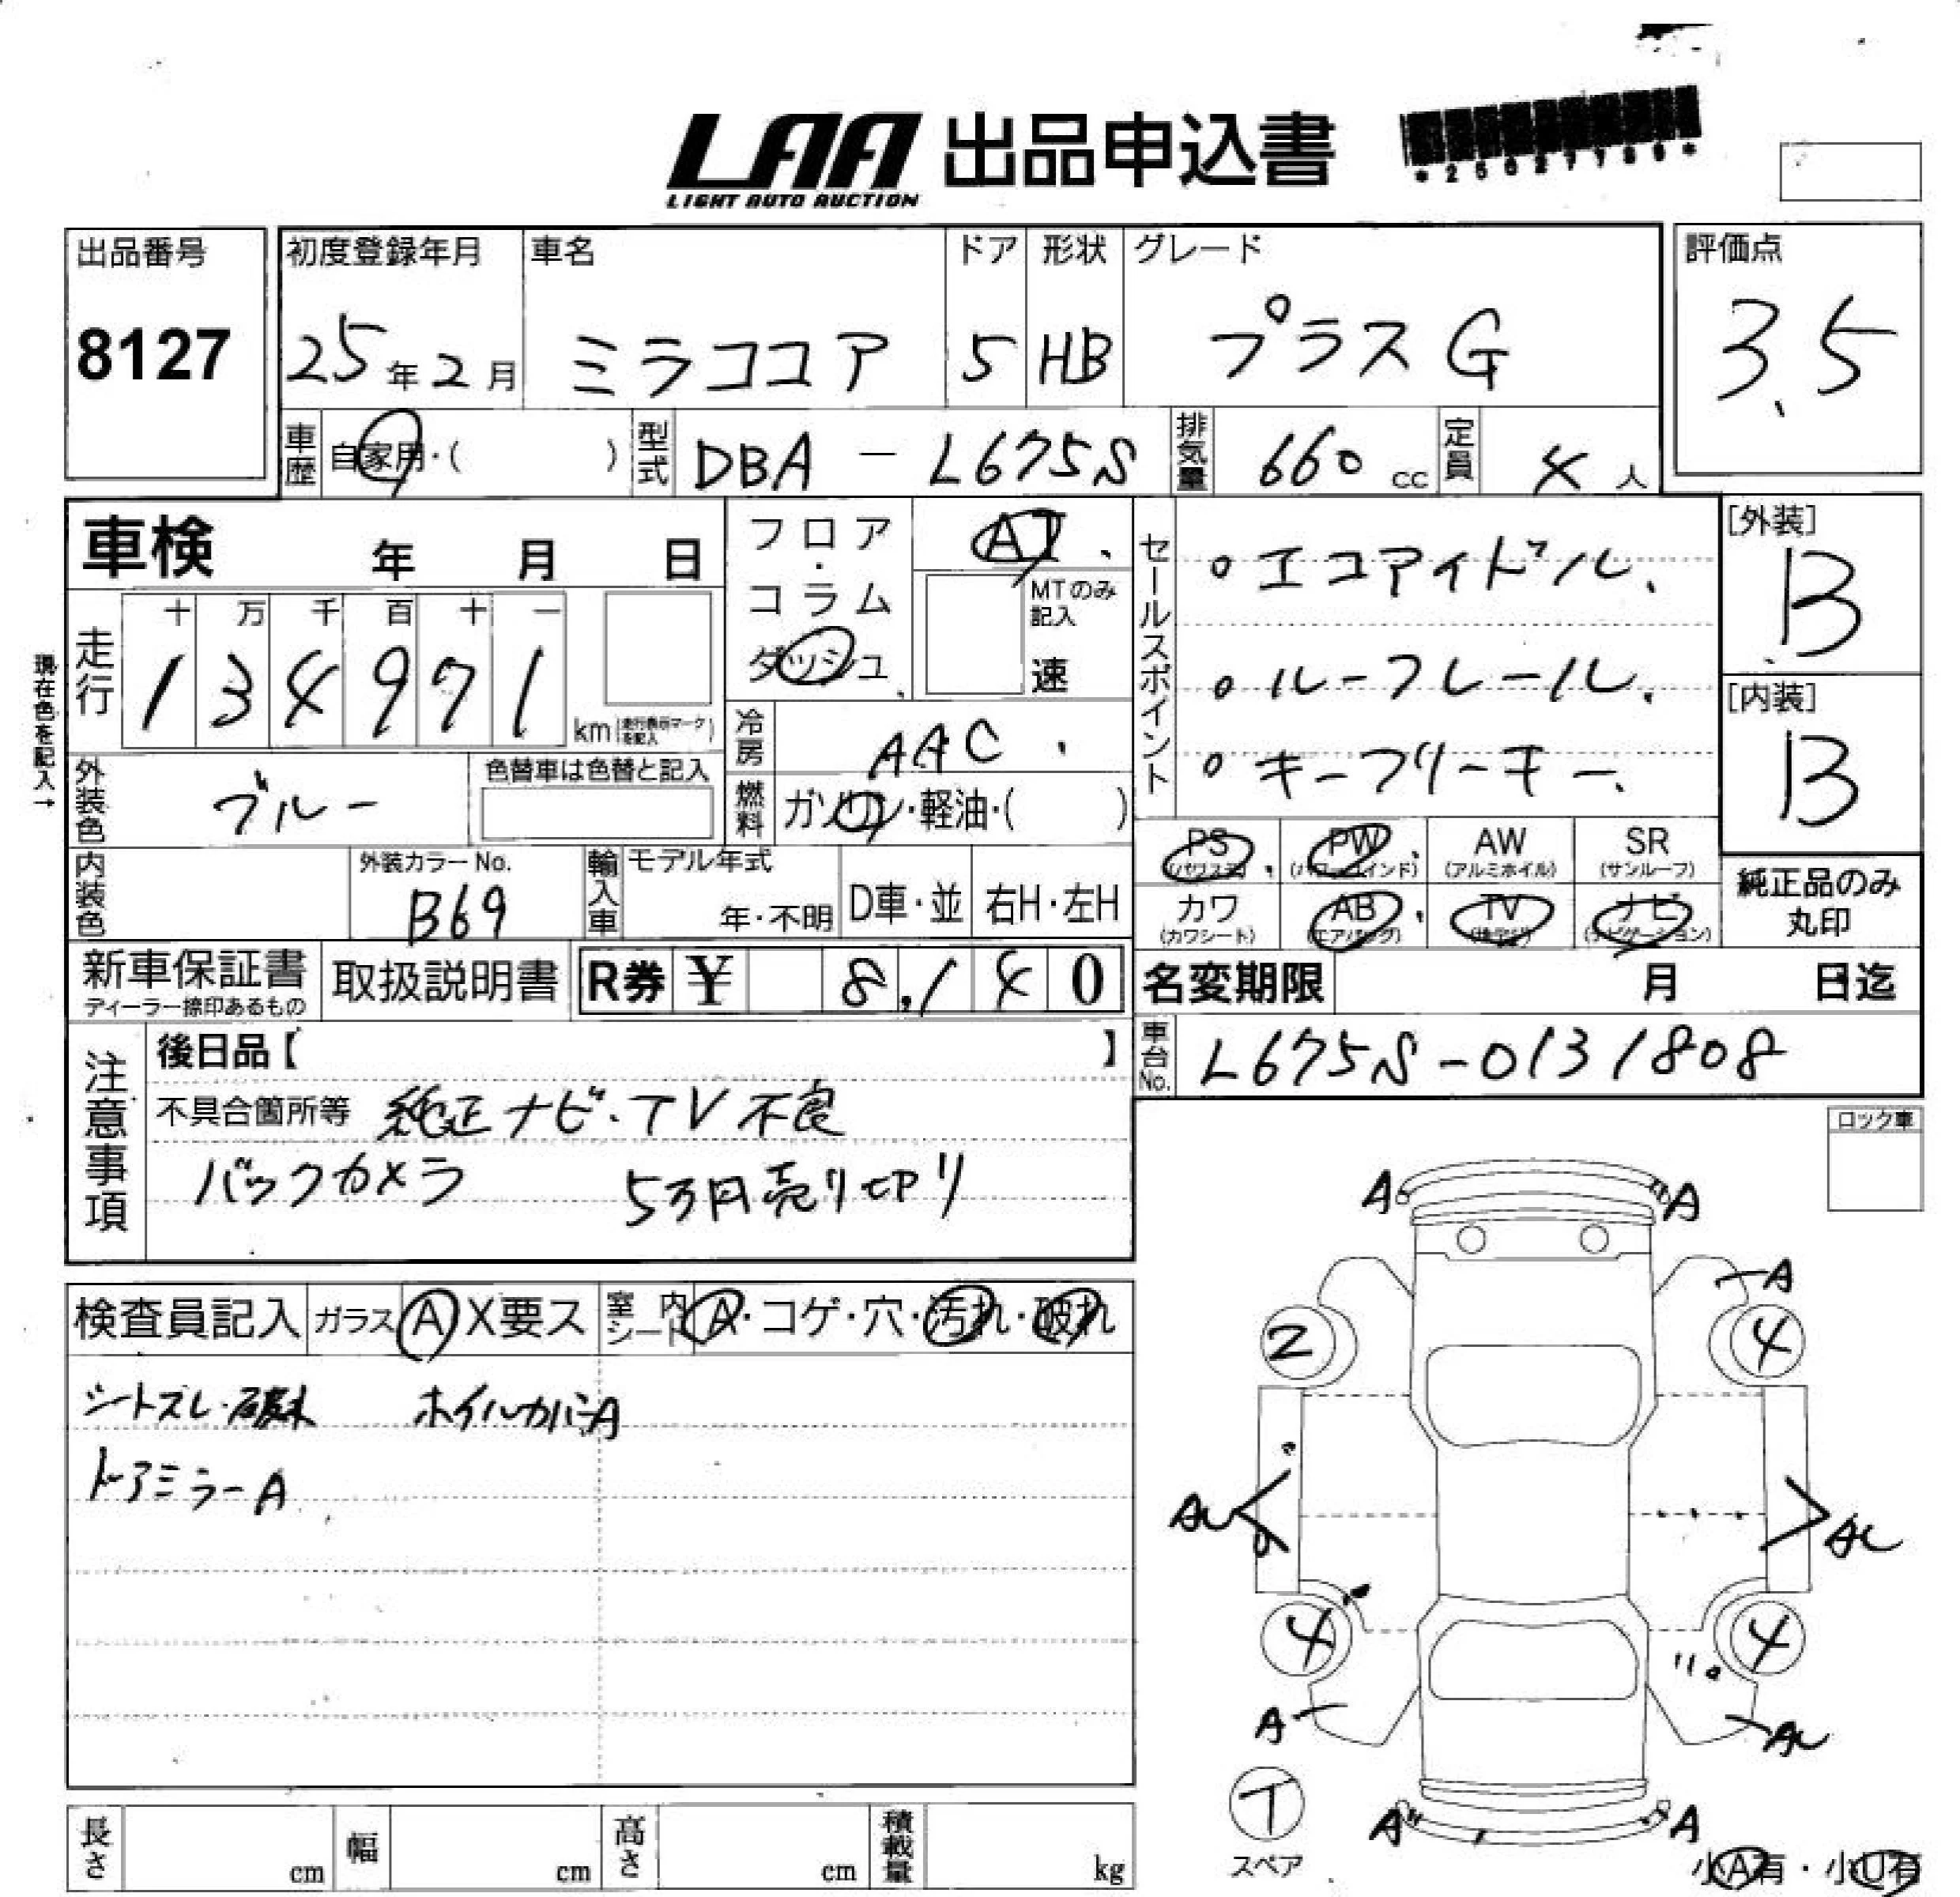 LAA 出品申込書
LIGHT AUTO AUCTION
出品番号 初度登録年月 車名 ドア 形状 グレード 評価点
8127 25年2月 ミラココア 5 HB プラスG 3.5
車歴 自家用・( ) 型式 DBA - L675S 排気量 660 cc 定員 4 人
車検 年 月 日 フロア・コラム ダッシュ AT MTのみ記入 速
セールスポイント
・エコアイドル
・ルーフレール
・キーフリーキー
[外装] B
[内装] B
現在色を記入→
走行 十 万 千 百 十 一
134971 km 走行表示マークを記入
冷房 AAC
外装色 ブルー 色替車は色替と記入
燃料 ガソリン・軽油・( )
PS (パワステ) PW (パワーウインド) AW (アルミホイル) SR (サンルーフ)
カワ (カワシート) AB (エアバッグ) TV (地デジ) ナビ (ナビゲーション)
純正品のみ丸印
内装色 外装カラーNo. B69 輸入車 モデル年式 年・不明 D車・並 右H・左H
新車保証書 ディーラー捺印あるもの 取扱説明書 R券 ¥ 8,140
名変期限 月 日迄
車台No. L675S-0131808
注意事項
後日品【 】
不具合箇所等 純正ナビ・TV不良
バックカメラ 5万円売り切り
ロック車
検査員記入 ガラス A X要ス 室内シート A・コゲ・穴・汚れ・破れ
シートズレ・破れ ホイルカバーA
ドアミラーA
A A
A
2 4
AU AU
4 4
A AU
T
スペア
A A
小A有・小U有
長さ cm 幅 cm 高さ cm 積載量 kg